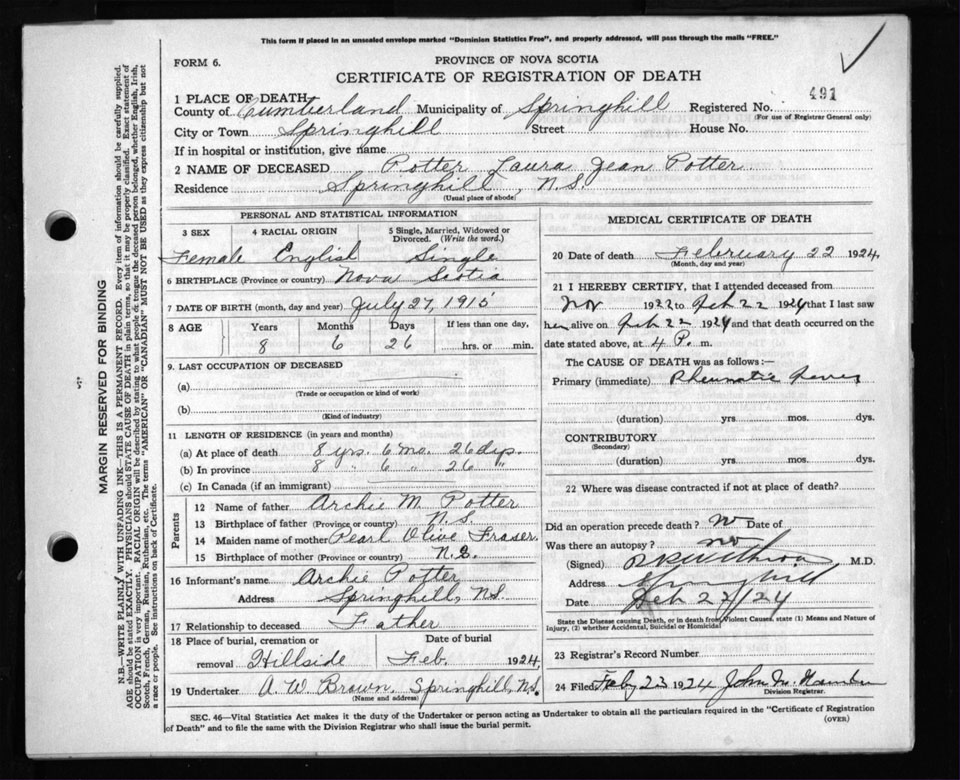 This form if placed in an unsealed envelope marked "Dominion Statistics Free", and properly addressed, will pass through the mails "FREE."
FORM 6.
PROVINCE OF NOVA SCOTIA
CERTIFICATE OF REGISTRATION OF DEATH
1 PLACE OF DEATH
County of Cumberland Municipality of Springhill Registered No. 491
(For use of Registrar General only)
City or Town Springhill Street House No.
If in hospital or institution, give name
2 NAME OF DECEASED Potter Laura Jean Potter
Residence Springhill, N.S.
(Usual place of abode)
PERSONAL AND STATISTICAL INFORMATION
3 SEX 4 RACIAL ORIGIN 5 Single, Married, Widowed or Divorced. (Write the word.)
Female English Single
6 BIRTHPLACE (Province or country) Nova Scotia
7 DATE OF BIRTH (month, day and year) July 27, 1915
8 AGE Years Months Days If less than one day,
8 6 26 hrs. or min.
9. LAST OCCUPATION OF DECEASED
(a)
(Trade or occupation or kind of work)
(b)
(Kind of industry)
11 LENGTH OF RESIDENCE (in years and months)
(a) At place of death 8 yrs. 6 mo. 26 dys.
(b) In province 8 " 6 " 26 "
(c) In Canada (if an immigrant)
Parents
12 Name of father Archie M. Potter
13 Birthplace of father (Province or country) N.S.
14 Maiden name of mother Pearl Olive Fraser
15 Birthplace of mother (Province or country) N.S.
16 Informant's name Archie Potter
Address Springhill, N.S.
17 Relationship to deceased Father
18 Place of burial, cremation or Date of burial
removal Hillside Feb. 1924.
19 Undertaker A. W. Brown, Springhill, N.S.
(Name and address)
MEDICAL CERTIFICATE OF DEATH
20 Date of death February 22 1924.
(Month, day and year)
21 I HEREBY CERTIFY, that I attended deceased from
Nov 1922 to Feb 22 1924 that I last saw
her alive on Feb 22 1924 and that death occurred on the
date stated above, at 4 P. m.
The CAUSE OF DEATH was as follows:—
Primary (immediate) Rheumatic fever
(duration) yrs. mos. dys.
CONTRIBUTORY
(Secondary)
(duration) yrs. mos. dys.
22 Where was disease contracted if not at place of death?
Did an operation precede death? no Date of
Was there an autopsy? no
(Signed) M.D.
Address Springhill
Date Feb 22/24
State the Disease causing Death, or in death from Violent Causes, state (1) Means and Nature of
Injury, (2) whether Accidental, Suicidal or Homicidal
23 Registrar's Record Number
24 Filed Feby 23 1924 John M.
Division Registrar.
SEC. 46—Vital Statistics Act makes it the duty of the Undertaker or person acting as Undertaker to obtain all the particulars required in the "Certificate of Registration
of Death" and to file the same with the Division Registrar who shall issue the burial permit. (OVER)
MARGIN RESERVED FOR BINDING
N.B.—WRITE PLAINLY WITH UNFADING INK—THIS IS A PERMANENT RECORD. Every item of information should be carefully supplied.
AGE should be stated EXACTLY. PHYSICIANS should STATE CAUSE OF DEATH in plain terms, so that it may be properly classified. Exact statement of
OCCUPATION is very important. RACIAL ORIGIN will be described by stating to what people & tongue the deceased person belonged, whether English, Irish,
Scotch, French, German, Russian, Ruthenian, etc. The terms "AMERICAN" OR "CANADIAN" MUST NOT BE USED as they express citizenship but not
a race or people. See instructions on back of Certificate.